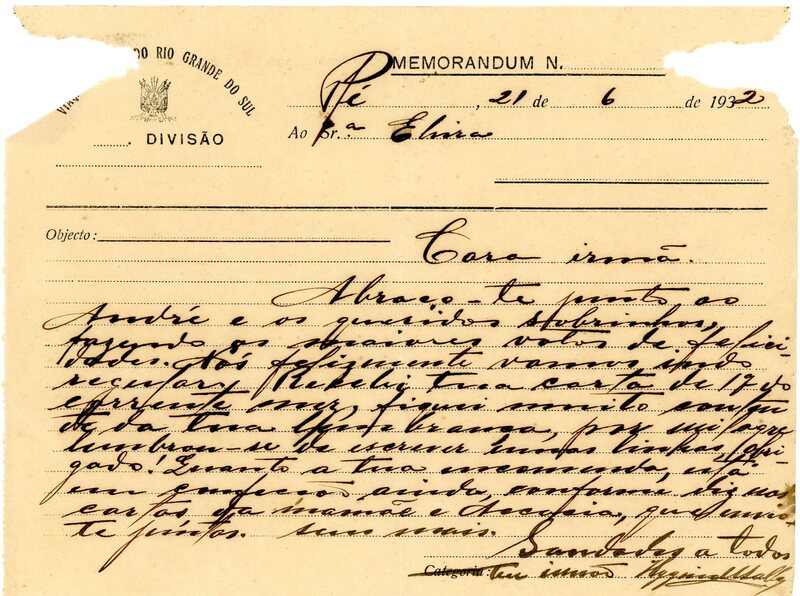 DO RIO GRANDE DO SUL
DIVISÃO
MEMORANDUM N.
Pé, 21 de 6 de 1932
Ao Sr.ª Elvira
Objecto:
Cara irmã.
Abraço-te junto ao
André e os queridos sobrinhos,
fazendo os maiores votos de felici
dades. Nós felizmente vamos indo
regular. Recebi tua carta de 17 do
corrente mez, fiquei muito conten
te da tua lembrança, por milagre
lembrou-se de escrever umas linhas, obri
gado! Quanto a tua encomenda, está
em confecção ainda, conforme diz nas
cartas da mamãe e que envio
te juntos. sem mais.
Saudades a todos
Categoria: teu irmão